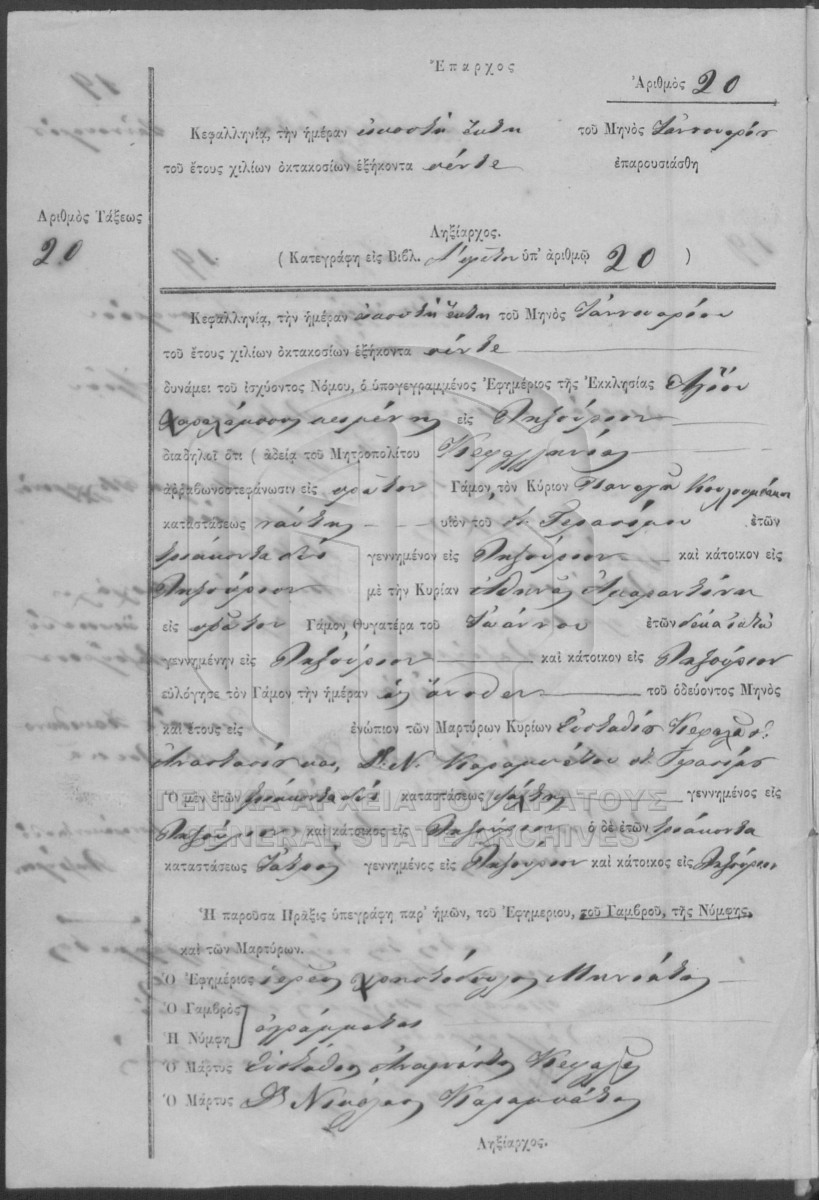 Ἔπαρχος
Ἀριθμὸς 20
Κεφαλληνίᾳ, τὴν ἡμέραν εἰκοστὴ ἕκτη τοῦ Μηνὸς Ἰαννουαρίου
τοῦ ἔτους χιλίων ὀκτακοσίων ἑξήκοντα πέντε ἐπαρουσιάσθη
Ἀριθμὸς Τάξεως
20
Ληξίαρχος.
( Κατεγράφη εἰς Βιβλ. ὑπ' ἀριθμῷ 20 )
Κεφαλληνίᾳ, τὴν ἡμέραν εἰκοστὴ ἕκτη τοῦ Μηνὸς Ἰαννουαρίου
τοῦ ἔτους χιλίων ὀκτακοσίων ἑξήκοντα πέντε
δυνάμει τοῦ ἰσχύοντος Νόμου, ὁ ὑπογεγραμμένος Ἐφημέριος τῆς Ἐκκλησίας Ἁγίου
Χαραλάμπους κειμένης εἰς Ληξούριον
διαδηλοῖ ὅτι ( ἀδείᾳ τοῦ Μητροπολίτου Κεφαλληνίας
ἀρραβωνοστεφάνωσιν εἰς πρῶτον Γάμον, τὸν Κύριον Παναγῆ
καταστάσεως ναύτης υἱὸν τοῦ Γερασίμου ἐτῶν
τριάκοντα δύο γεννημένον εἰς Ληξούριον καὶ κάτοικον εἰς
Ληξούριον μὲ τὴν Κυρίαν Ἀθηνᾶν
εἰς πρῶτον Γάμον, Θυγατέρα τοῦ Ἰωάννου ἐτῶν δέκα ὀκτὼ
γεννημένην εἰς Ληξούριον καὶ κάτοικον εἰς Ληξούριον
εὐλόγησε τὸν Γάμον τὴν ἡμέραν ὡς ἄνωθεν τοῦ ὁδεύοντος Μηνὸς
καὶ ἔτους εἰς ἐνώπιον τῶν Μαρτύρων Κυρίων Εὐστάθιος Κεφαλᾶς
Ἀναστασίου καὶ, Δρ. Ν. Καραμπάτου Γερασίμου
Ὁ μὲν ἐτῶν τριάκοντα δύο καταστάσεως γεννημένος εἰς
Ληξούριον καὶ κάτοικος εἰς Ληξούριον ὁ δὲ ἐτῶν τριάκοντα
ΓΕΝΙΚΑ ΑΡΧΕΙΑ ΤΟΥ ΚΡΑΤΟΥΣ
GENERAL STATE ARCHIVES
καταστάσεως Ἰατρὸς γεννημένος εἰς Ληξούριον καὶ κάτοικος εἰς Ληξούριον
Ἡ παροῦσα Πρᾶξις ὑπεγράφη παρ' ἡμῶν, τοῦ Ἐφημερίου, τοῦ Γαμβροῦ, τῆς Νύμφης,
καὶ τῶν Μαρτύρων.
Ὁ Ἐφημέριος ἱερεὺς Χριστόδουλος
Ὁ Γαμβρὸς
Ἡ Νύμφη ἀγράμματοι
Ὁ Μάρτυς Εὐστάθιος Κεφαλᾶς
Ὁ Μάρτυς Δρ Νικόλαος Καραμπάτος
Ληξίαρχος.